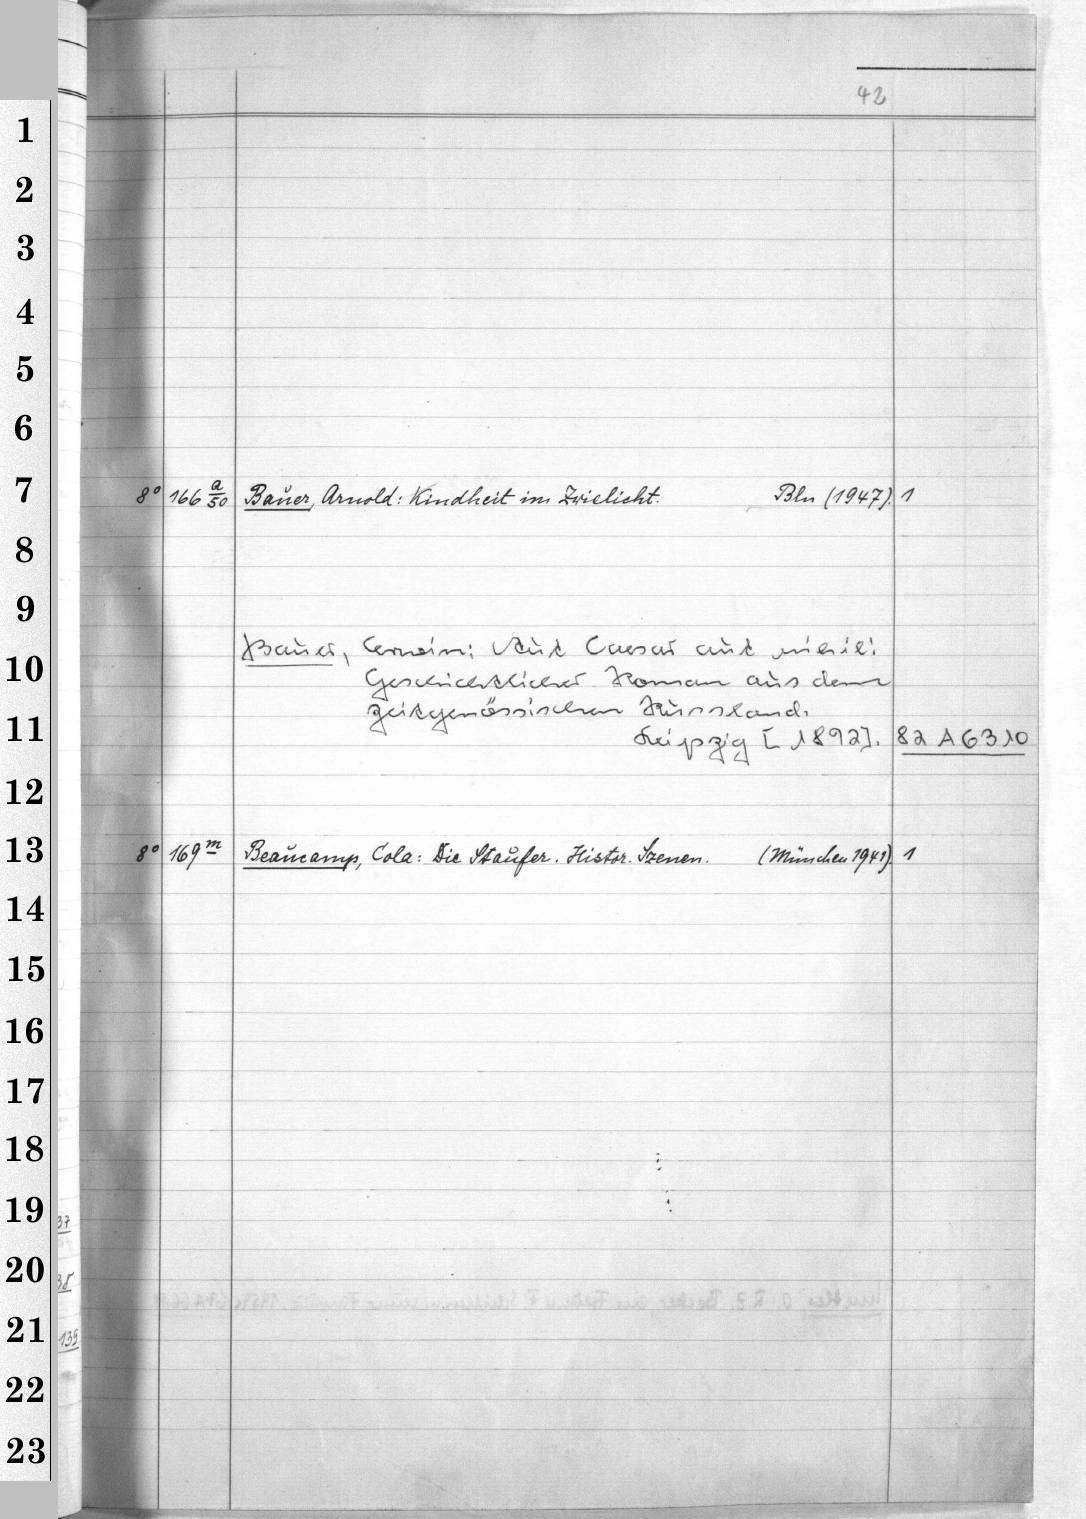 42
1
2
3
4
5
6
7
8° 166 a/50 Bauer, Arnold: Kindheit im Zwielicht. Bln (1947). 1
8
9
Bauer, Erwin: Aut Caesar aut nihil:
10
Geschichtlicher Roman aus dem
zeitgenössischen Russland.
11
Leipzig [1892]. 82 A 6310
12
13
8° 169 m Beaucamp, Cola: Die Staufer. Histor. Szenen. (München 1941). 1
14
15
16
17
18
19
37
20
38
21
139
22
23